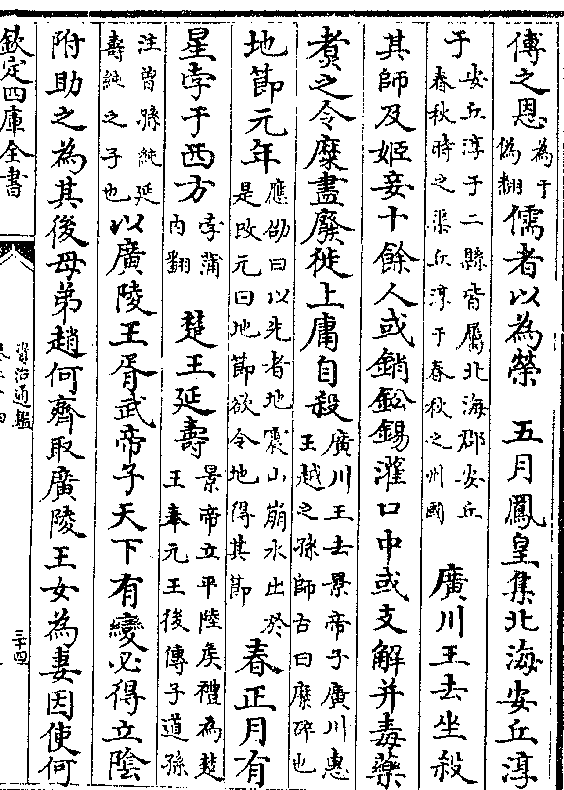 傅之恩為于偽翻儒者以為榮 五月鳳皇集北海安丘淳
于安丘淳于二縣皆屬北海郡安丘春秋時之渠丘淳于春秋之州國 廣川王去坐殺
其師及姬妾十餘人或銷鉛錫灌口中或支解并毒藥
煑之令糜盡廢徙上庸自殺廣川王去景帝子廣川惠王越之孫師古曰糜碎也
地節元年應劭曰以先者地震山崩水出於是改元曰地節欲令地得其節 春正月有
星孛于西方孛蒲内翻 楚王延壽景帝立平陸矦禮為楚王奉元王後傳子道孫
注曾孫純延壽純之子也以廣陵王胥武帝子天下有變必得立陰
附助之為其後母弟趙何齊取廣陵王女為妻因使何
欽定四庫全書 資治通鑑 三十四